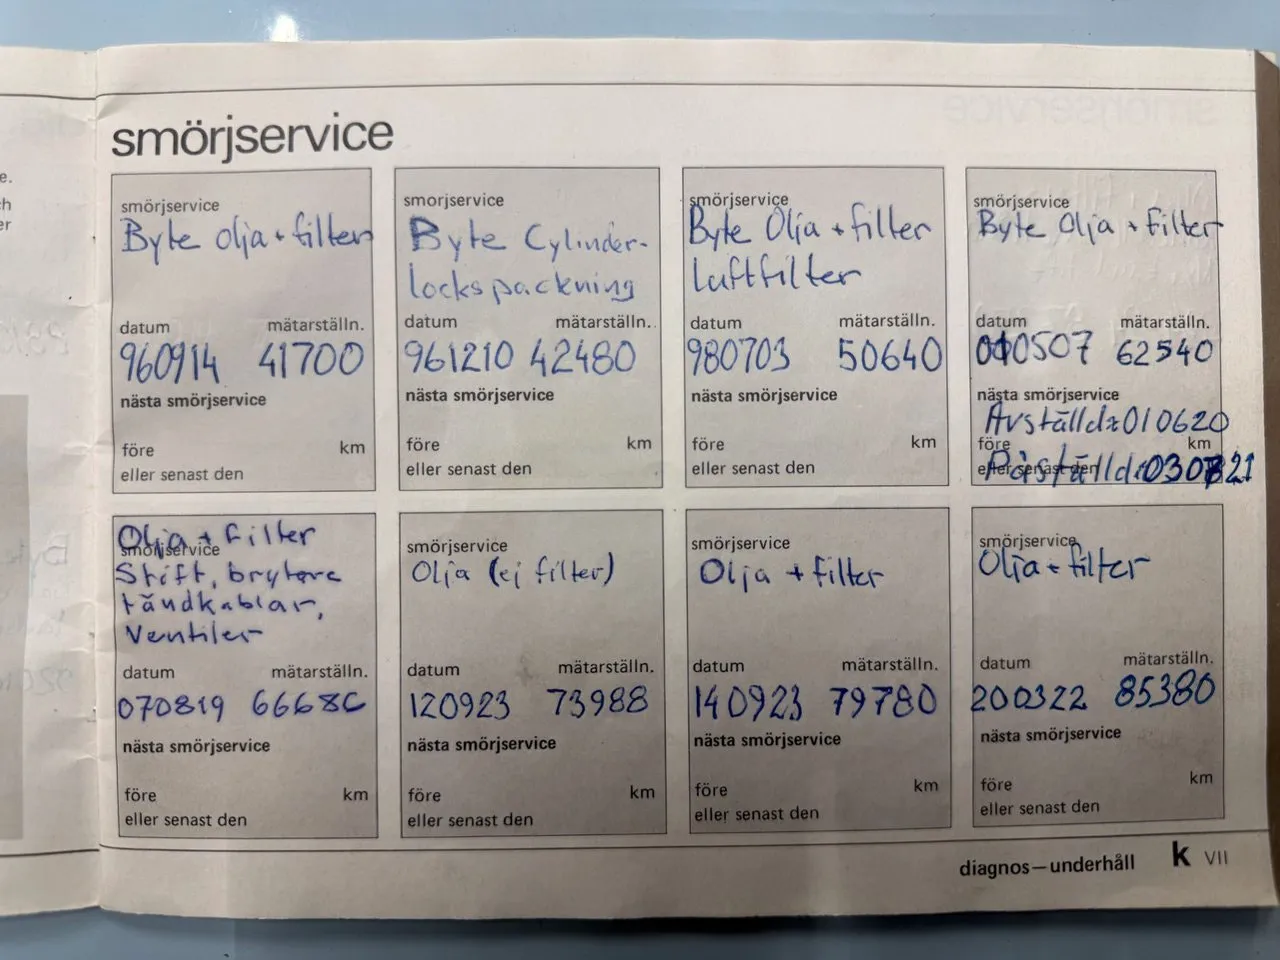 smörjservice
smörjservice
Byte olja + filter
datum mätarställn.
960914 41700
nästa smörjservice
före km
eller senast den
smorjservice
Byte Cylinder-
lockspackning
datum mätarställn.
961210 42480
nästa smörjservice
före km
eller senast den
smörjservice
Byte Olja + filter
luftfilter
datum mätarställn.
980703 50640
nästa smörjservice
före km
eller senast den
smörjservice
Byte Olja + filter
datum mätarställn.
010507 62540
nästa smörjservice
Avställd: 010620
före km
Påställd: 030821
eller senast den
Olja + filter
smörjservice
Stift, brytare
tändkablar,
Ventiler
datum mätarställn.
070819 66680
nästa smörjservice
före km
eller senast den
smörjservice
Olja (ej filter)
datum mätarställn.
120923 73988
nästa smörjservice
före km
eller senast den
smörjservice
Olja + filter
datum mätarställn.
140923 79780
nästa smörjservice
före km
eller senast den
smörjservice
Olja + filter
datum mätarställn.
200322 85380
nästa smörjservice
före km
eller senast den
diagnos—underhåll k VII